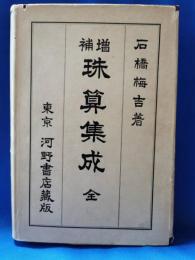 石橋梅吉著
増補
珠算集成 全
東京 河野書店蔵版